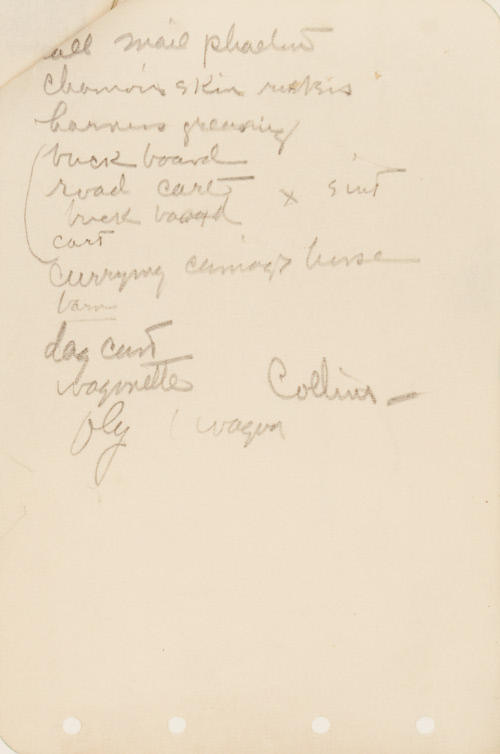 all mail phaeton
chamois skin
harness greasing
buck board
road cart x sint
buck board
cart
currying carriage horse
barn
dog cart
wagonette Collins —
fly ( wagon